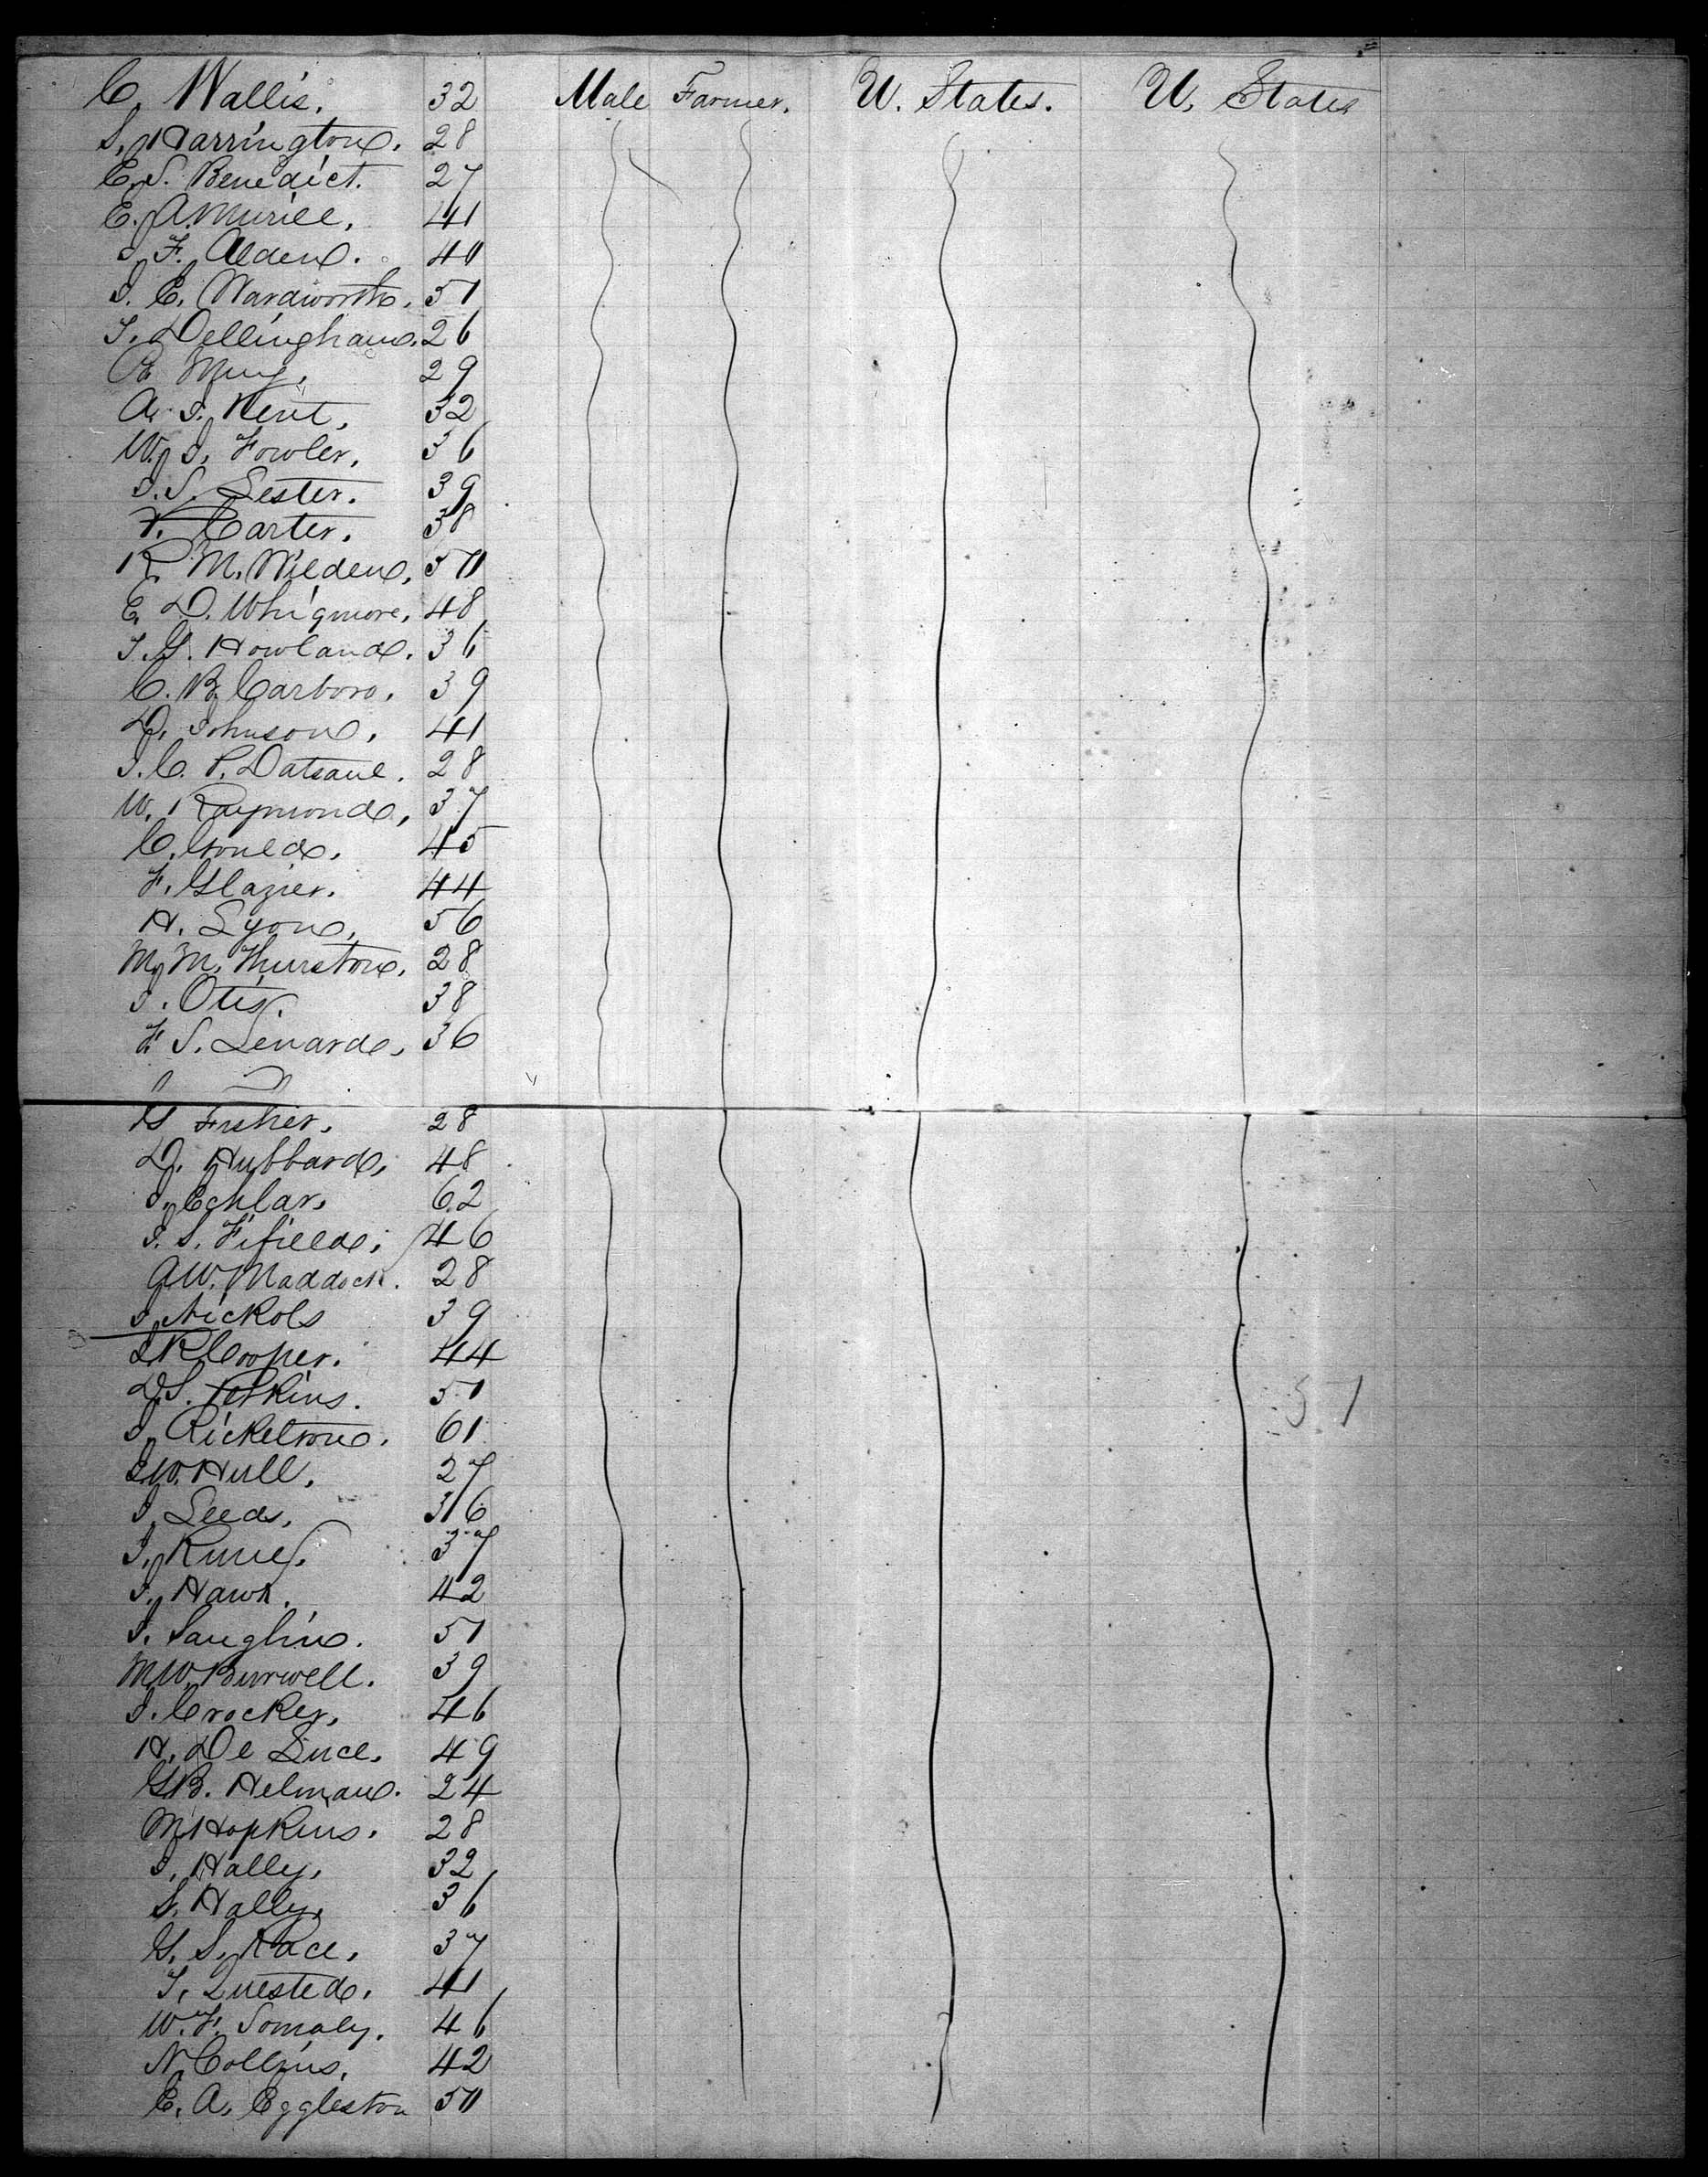 C. Wallis. 32 Male Farmer. U. States. U. States
S. Harrington. 28
E. S. Benedict. 27
E. A. Murill. 41
J. F. Alden. 40
J. E. Wardworth. 51
T. Dellingham. 26
29
A. J. Kent. 32
W. J. Fowler. 36
J. S. Lester. 39
V. Carter. 38
R. M. Wilden. 50
E. D. Whigmore. 48
T. G. Howland. 36
C. B. Carboro. 39
D. Johnson. 41
J. C. P. Datsane. 28
W. Raymond, 37
C. Gould. 45
F. Glazier. 44
H. Lyon. 56
M. M. Thurston. 28
J. Otis. 38
F. S. Lenard. 36
G Fisher. 28
D. Hubbard. 48
J. Echlar. 62
J. S. Fifield. 46
A W. Maddock. 28
J. Nickols 39
J R Cooper. 44
D. S. Perkins. 51
J. Ricketson. 61
J. W. Hull. 27
J. Leeds. 36
J. Rune. 37
J. Hawk. 42
J. Laughin. 51
M W. Burwell. 39
J. Crocker. 46
H. De Luce. 49
G B. Helman. 24
M. Hopkins. 28
J. Hally. 32
S. Hally. 36
G. S. Race. 37
T. Quested. 41
W. F. Somaly. 46
N. Collins. 42
C. A. Eggleston 50
57